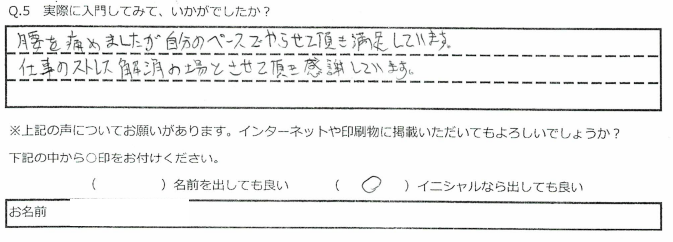 Q.5 実際に入門してみて、いかがでしたか？
腰を痛めましたが自分のペースでやらせて頂き満足しています。
仕事のストレス解消の場とさせて頂き感謝しています。
※上記の声についてお願いがあります。インターネットや印刷物に掲載いただいてもよろしいでしょうか？
下記の中から○印をお付けください。
（　　　　）名前を出しても良い　　（　○　）イニシャルなら出しても良い
お名前